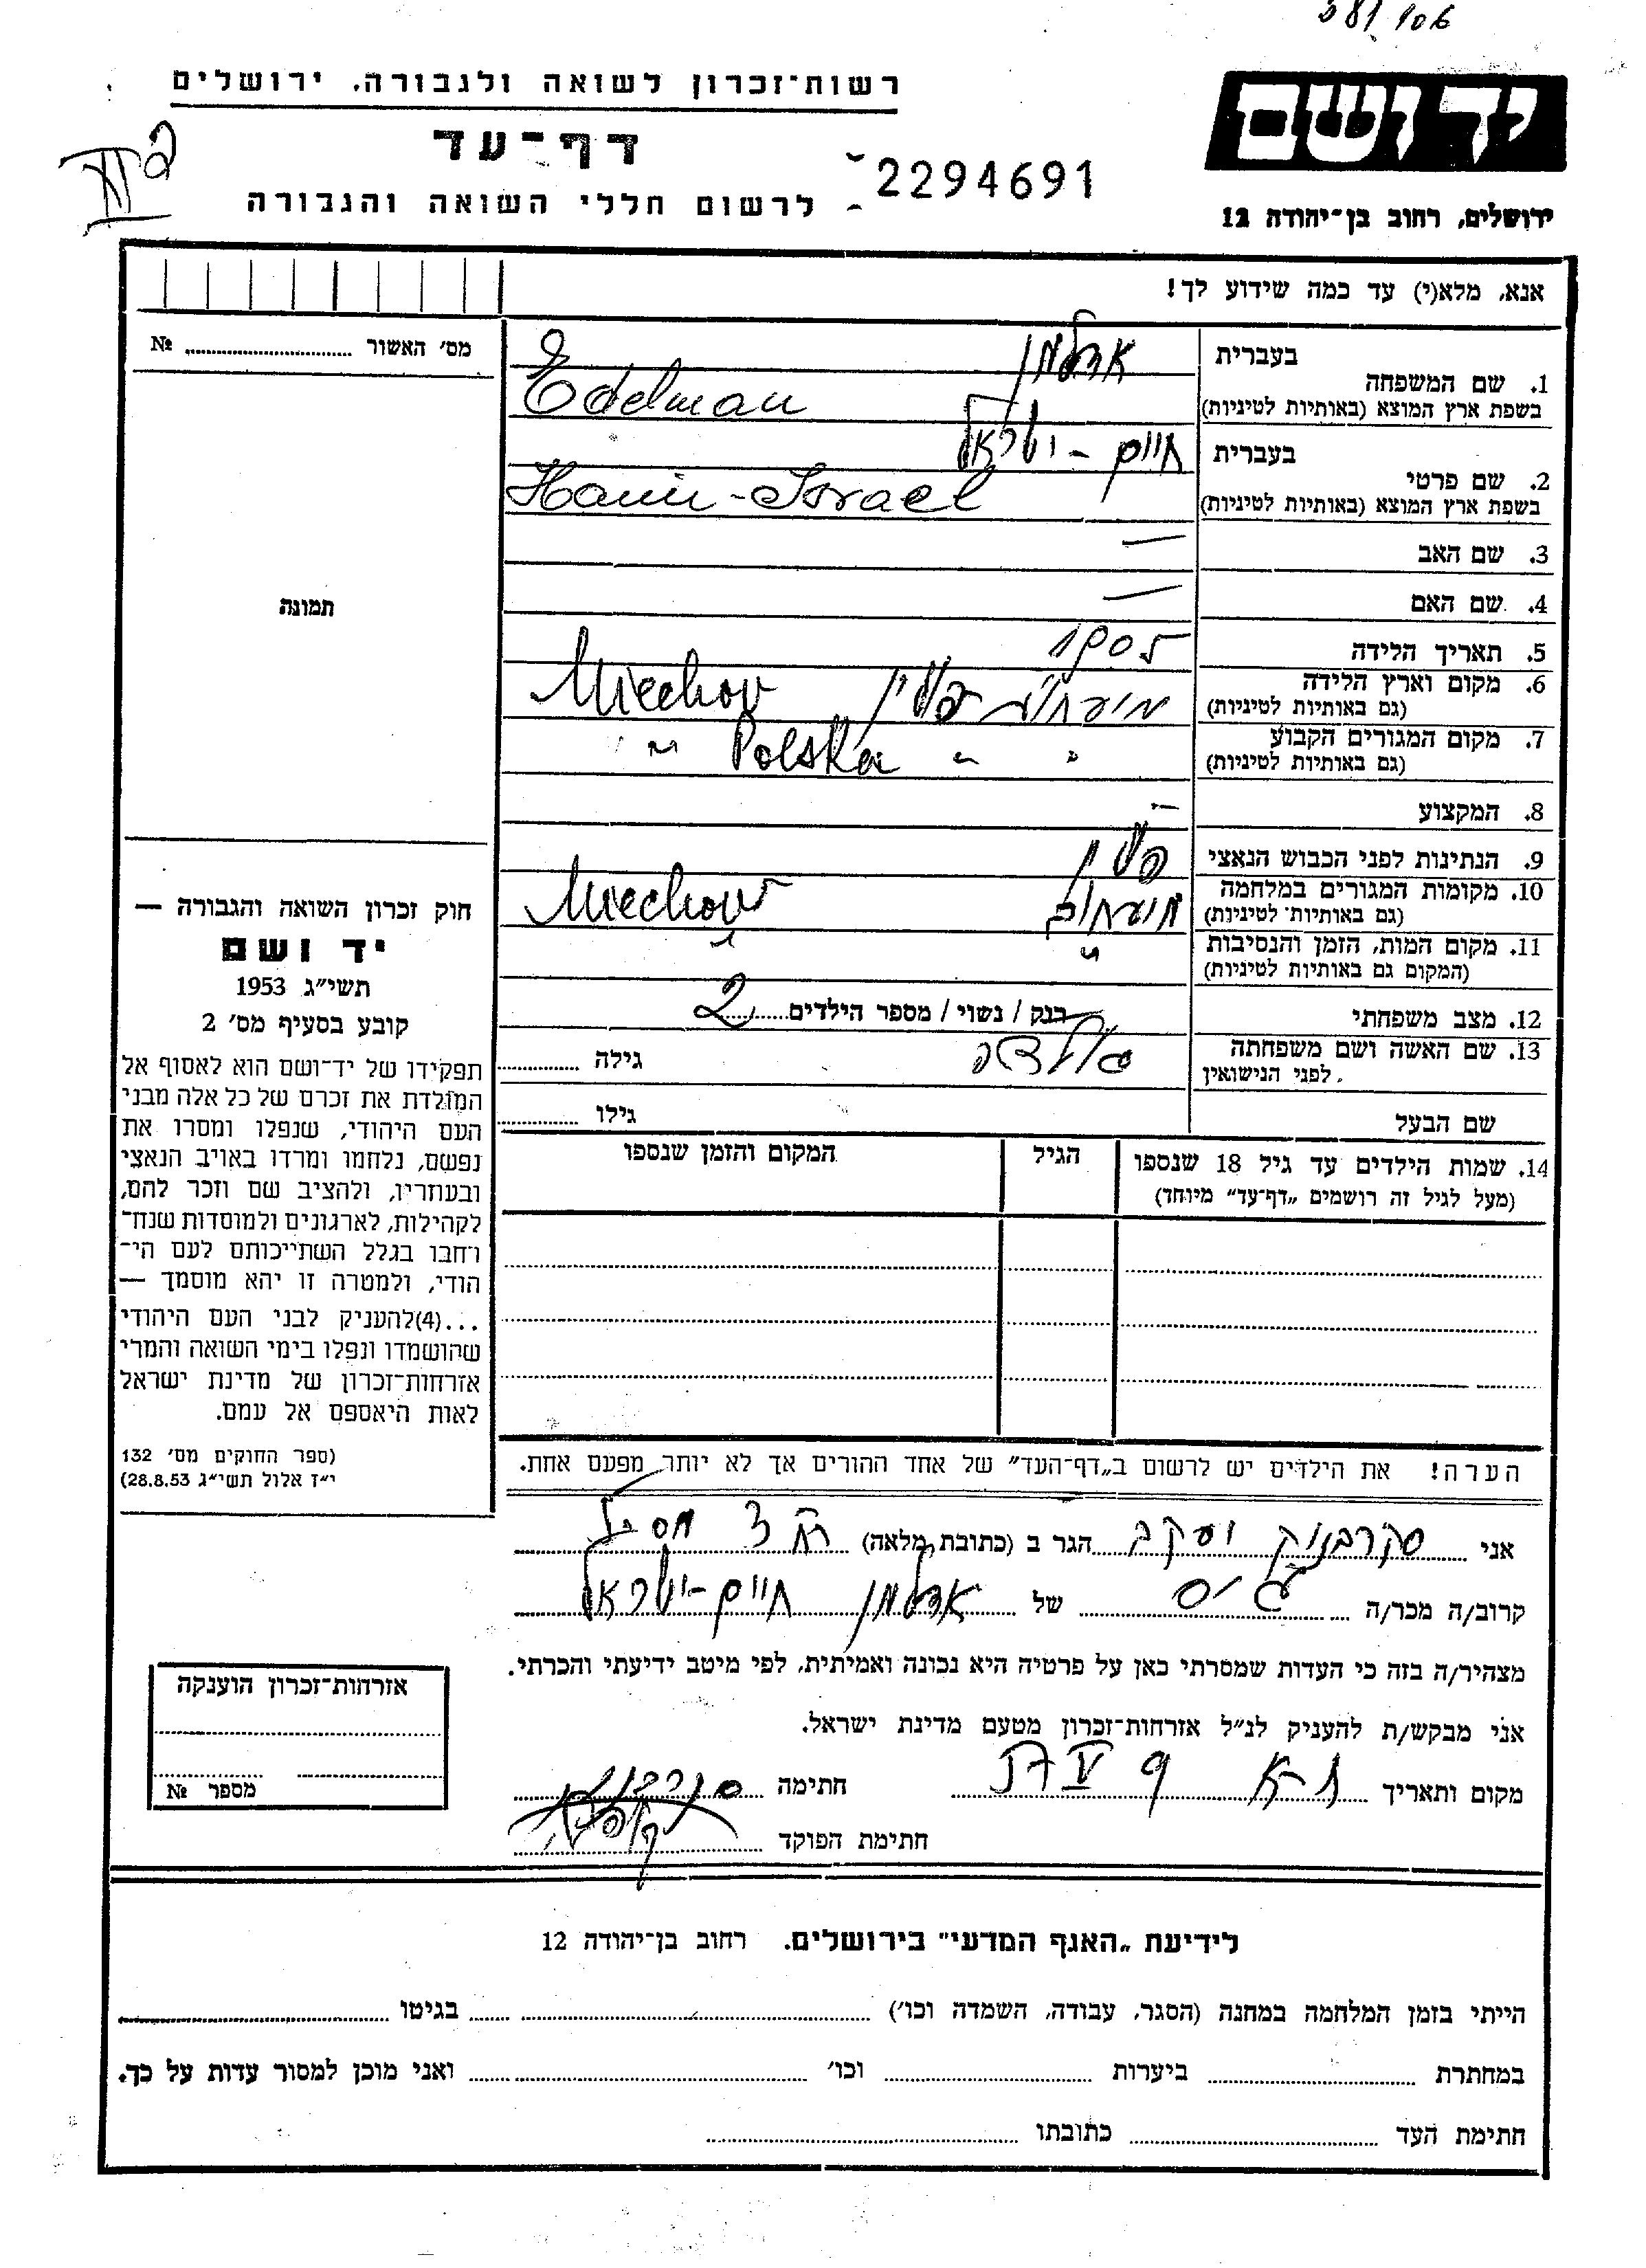 381/106
רשות־זכרון לשואה ולגבורה, ירושלים
יד ושם
דף־עד
2294691
לרשום חללי השואה והגבורה
ירושלים, רחוב בן־יהודה 12
אנא, מלא(י) עד כמה שידוע לך!
מס׳ האשור № ........
1. שם המשפחה בעברית אדלמן
בשפת ארץ המוצא (באותיות לטיניות) Edelman
2. שם פרטי בעברית חיים - ישראל
בשפת ארץ המוצא (באותיות לטיניות) Haim-Israel
3. שם האב —
4. שם האם —
תמונה
5. תאריך הלידה 1905
6. מקום וארץ הלידה (גם באותיות לטיניות) פולין Miechov
7. מקום המגורים הקבוע (גם באותיות לטיניות) " " Polska "
8. המקצוע —
9. הנתינות לפני הכבוש הנאצי פולין
10. מקומות המגורים במלחמה (גם באותיות לטיניות) מיעחוב Miechov
11. מקום המות, הזמן והנסיבות (המקום גם באותיות לטיניות) " "
12. מצב משפחתי רווק / נשוי / מספר הילדים 2
13. שם האשה ושם משפחתה לפני הנישואין גולדה גילה ........
שם הבעל גילו ........
14. שמות הילדים עד גיל 18 שנספו (מעל לגיל זה רושמים „דף־עד” מיוחד)
הגיל
המקום והזמן שנספו
חוק זכרון השואה והגבורה —
יד ושם
תשי״ג 1953
קובע בסעיף מס׳ 2
תפקידו של יד־ושם הוא לאסוף אל
המולדת את זכרם של כל אלה מבני
העם היהודי, שנפלו ומסרו את
נפשם, נלחמו ומרדו באויב הנאצי
ובעוזריו, ולהציב שם וזכר להם,
לקהילות, לארגונים ולמוסדות שנח־
רבו בגלל השתייכותם לעם הי־
הודי, ולמטרה זו יהא מוסמך —
...(4)להעניק לבני העם היהודי
שהושמדו ונפלו בימי השואה והמרי
אזרחות־זכרון של מדינת ישראל
לאות היאספם אל עמם.
(ספר החוקים מס׳ 132
י״ז אלול תשי״ג 28.8.53)
הערה! את הילדים יש לרשום ב„דף־העד” של אחד ההורים אך לא יותר מפעם אחת.
אני סקרבניק יעקב הגר ב (כתובת מלאה)
קרוב/ה מכר/ה גיס של אדלמן חיים-ישראל
מצהיר/ה בזה כי העדות שמסרתי כאן על פרטיה היא נכונה ואמיתית, לפי מיטב ידיעתי והכרתי.
אני מבקש/ת להעניק לנ״ל אזרחות־זכרון מטעם מדינת ישראל.
מקום ותאריך ת-א 9 V חתימה
חתימת הפוקד
אזרחות־זכרון הוענקה
מספר №
לידיעת „האגף המדעי” בירושלים, רחוב בן־יהודה 12
הייתי בזמן המלחמה במחנה (הסגר, עבודה, השמדה וכו׳) ........ בגיטו ........
במחתרת ........ ביערות ........ וכו׳ ........ ואני מוכן למסור עדות על כך.
חתימת העד ........ כתובתו ........